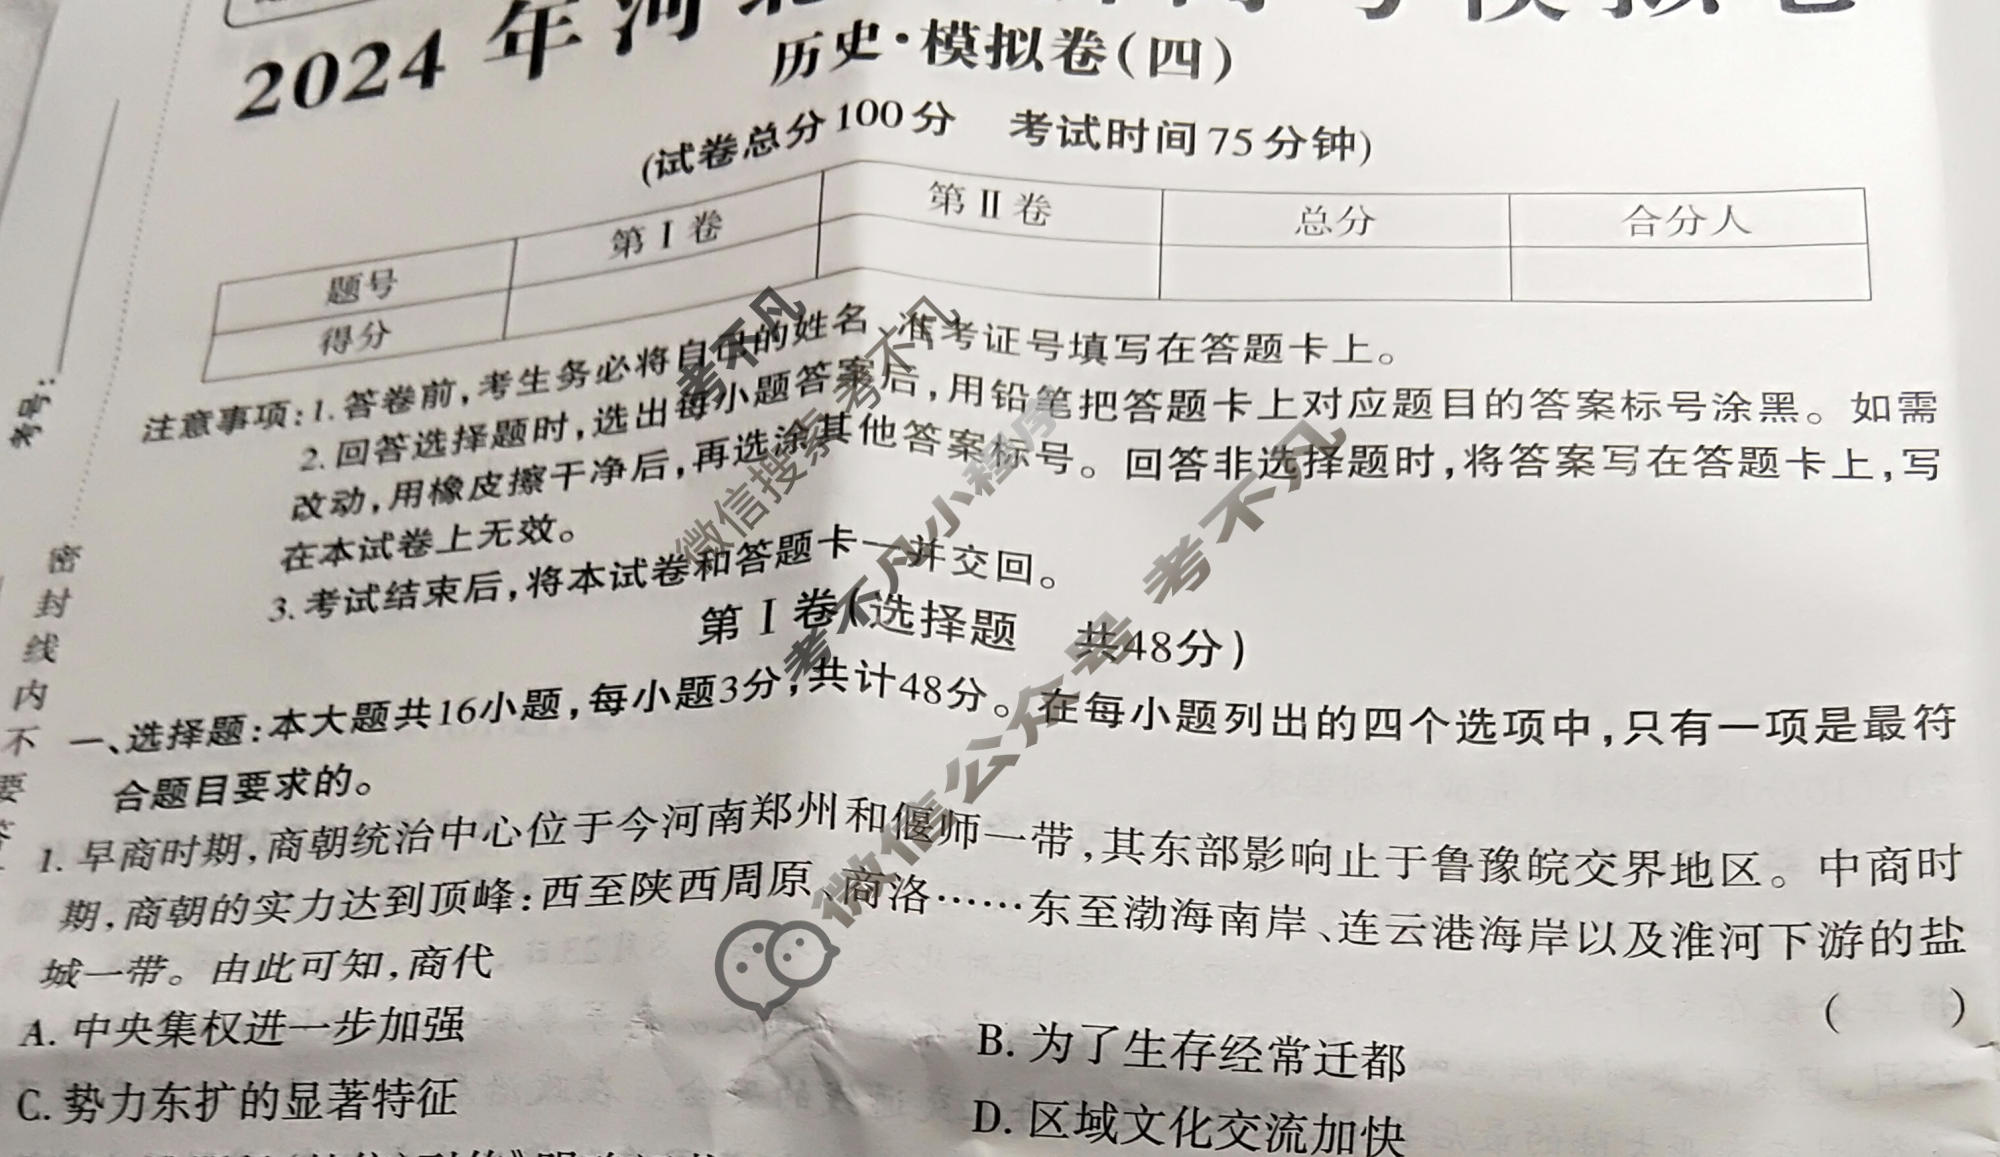 2024年河北
历史·模拟卷(四)
(试卷总分100分 考试时间75分钟)
题号 第Ⅰ卷 第Ⅱ卷 总分 合分人
得分
注意事项:1.答卷前,考生务必将自己的姓名、准考证号填写在答题卡上。
2.回答选择题时,选出每小题答案后,用铅笔把答题卡上对应题目的答案标号涂黑。如需
改动,用橡皮擦干净后,再选涂其他答案标号。回答非选择题时,将答案写在答题卡上,写
在本试卷上无效。
3.考试结束后,将本试卷和答题卡一并交回。
第Ⅰ卷(选择题 共48分)
一、选择题:本大题共16小题,每小题3分,共计48分。在每小题列出的四个选项中,只有一项是最符
合题目要求的。
1.早商时期,商朝统治中心位于今河南郑州和偃师一带,其东部影响止于鲁豫皖交界地区。中商时
期,商朝的实力达到顶峰:西至陕西周原、商洛……东至渤海南岸、连云港海岸以及淮河下游的盐
城一带。由此可知,商代
( )
A.中央集权进一步加强
B.为了生存经常迁都
C.势力东扩的显著特征
D.区域文化交流加快
考号:
密封线内不要
考不凡
微信搜索 考不凡
考不凡小程序
微信公众号 考不凡